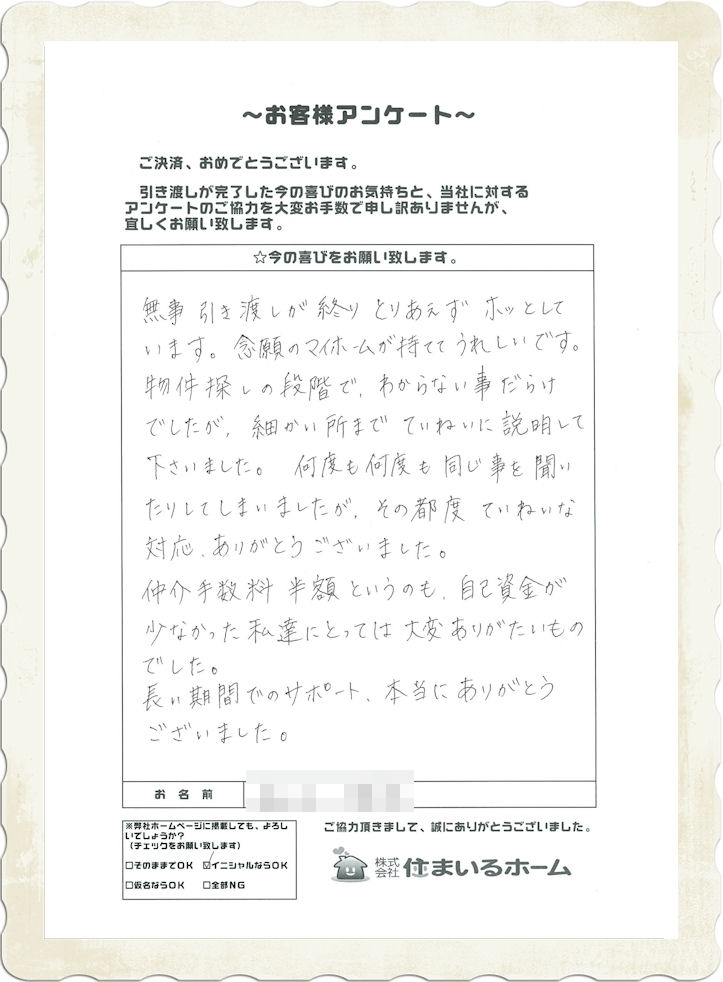 ～お客様アンケート～
ご決済、おめでとうございます。
引き渡しが完了した今の喜びのお気持ちと、当社に対する
アンケートのご協力を大変お手数で申し訳ありませんが、
宜しくお願い致します。
☆今の喜びをお願い致します。
無事 引き渡しが 終り とりあえず ホッとして
います。念願のマイホームが持ててうれしいです。
物件探しの段階で、わからない事だらけ
でしたが、細かい所まで ていねいに説明して
下さいました。 何度も何度も 同じ事を聞い
たりしてしまいましたが、その都度 ていねいな
対応、ありがとうございました。
仲介手数料 半額というのも、自己資金が
少なかった私達にとっては大変ありがたいもの
でした。
長い期間でのサポート、本当にありがとう
ございました。
お名前
※弊社ホームページに掲載しても、よろし
いでしょうか？
（チェックをお願い致します）
□そのままでOK ☑イニシャルならOK
□仮名ならOK □全部NG
ご協力頂きまして、誠にありがとうございました。
株式会社 住まいるホーム